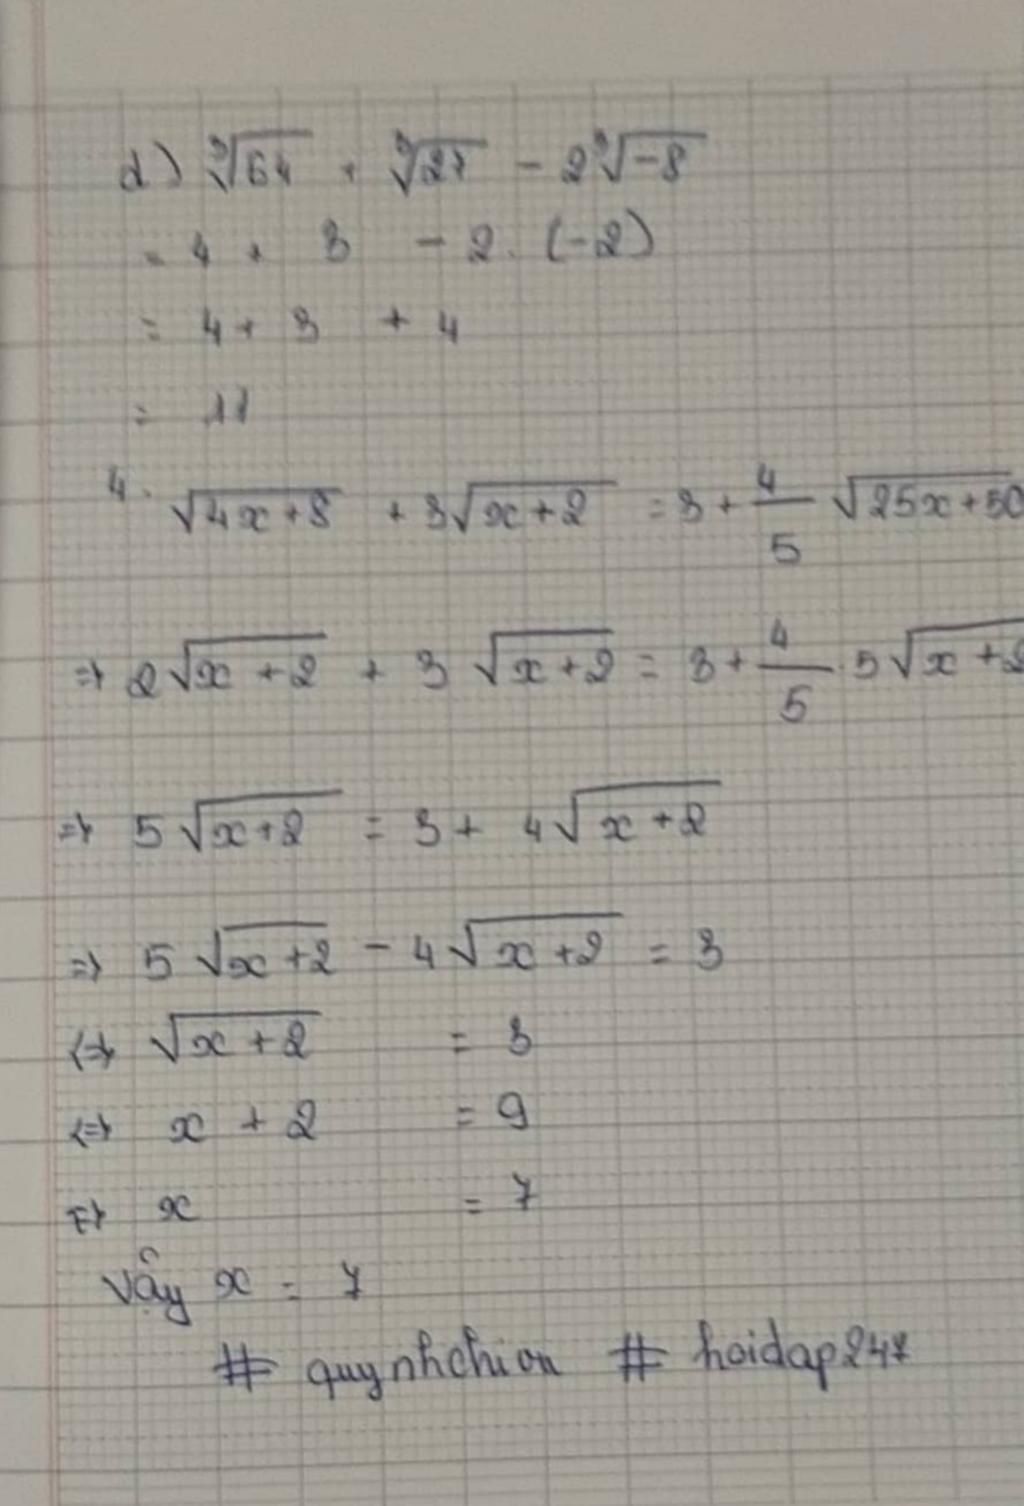 d) ∛64 + ∛27 - 2∛-8
= 4 + 3 - 2. (-2)
= 4 + 3 + 4
= 11
4. √4x+8 + 3√x+2 = 3 + 4/5 √25x+50
=> 2√x+2 + 3√x+2 = 3 + 4/5 . 5√x+2
=> 5√x+2 = 3 + 4√x+2
=> 5√x+2 - 4√x+2 = 3
<=> √x+2 = 3
<=> x + 2 = 9
=> x = 7
Vậy x = 7
# quynhchion # hoidap247